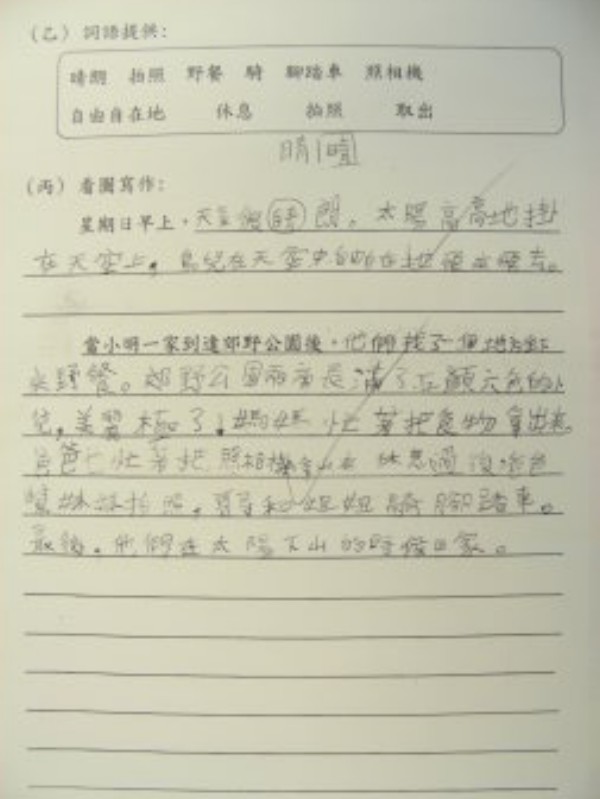 (乙) 詞語提供：
晴朗 拍照 野餐 騎 腳踏車 照相機
自由自在地 休息 拍照 取出
晴
(丙) 看圖寫作：
星期日早上，天氣很晴朗。太陽高高地掛
在天空上，鳥兒在天空中自由自在地飛來飛去。
當小明一家到達郊野公園後，他們找了個地方
來野餐。郊野公園裏滿了五顏六色的
美麗極了！媽媽忙著把食物拿出來
爸爸忙著把照相機拿出來 休息過後爸爸
妹妹拍照，哥哥和姐姐騎腳踏車。
最後，他們在太陽下山的時候回家。